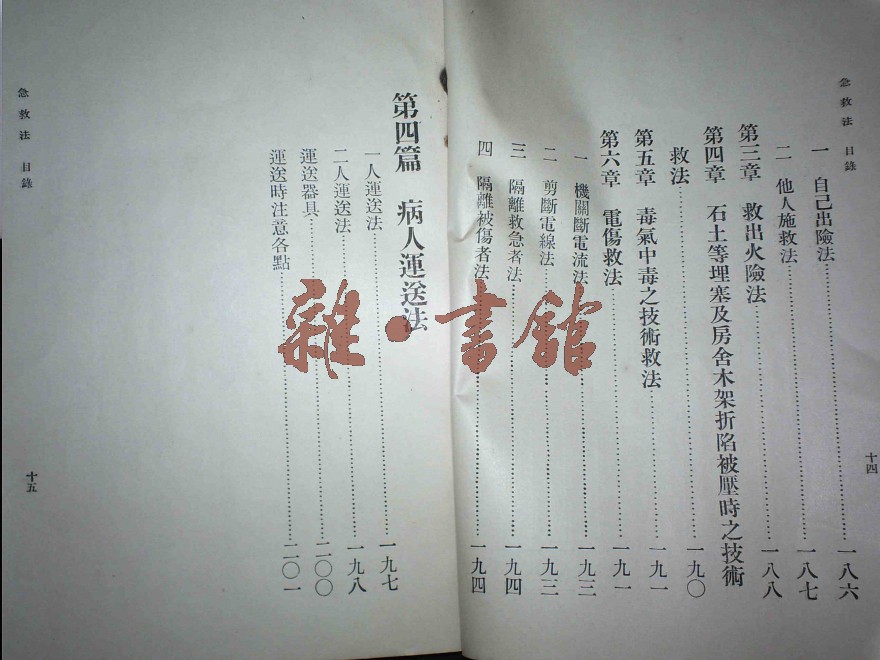 急救法 目錄
一 自己出險法……一八六
二 他人施救法……一八七
第三章 救出火險法……一八八
第四章 石土等埋塞及房舍木架折陷被壓時之技術
救法……一九〇
第五章 毒氣中毒之技術救法……一九一
第六章 電傷救法……一九一
一 機關斷電流法……一九三
二 剪斷電線法……一九三
三 隔離救急者法……一九四
四 隔離被傷者法……一九四
十四
急救法 目錄
第四篇 病人運送法
一人運送法……一九七
二人運送法……一九八
運送器具……二〇〇
運送時注意各點……二〇一
十五
雜·書館